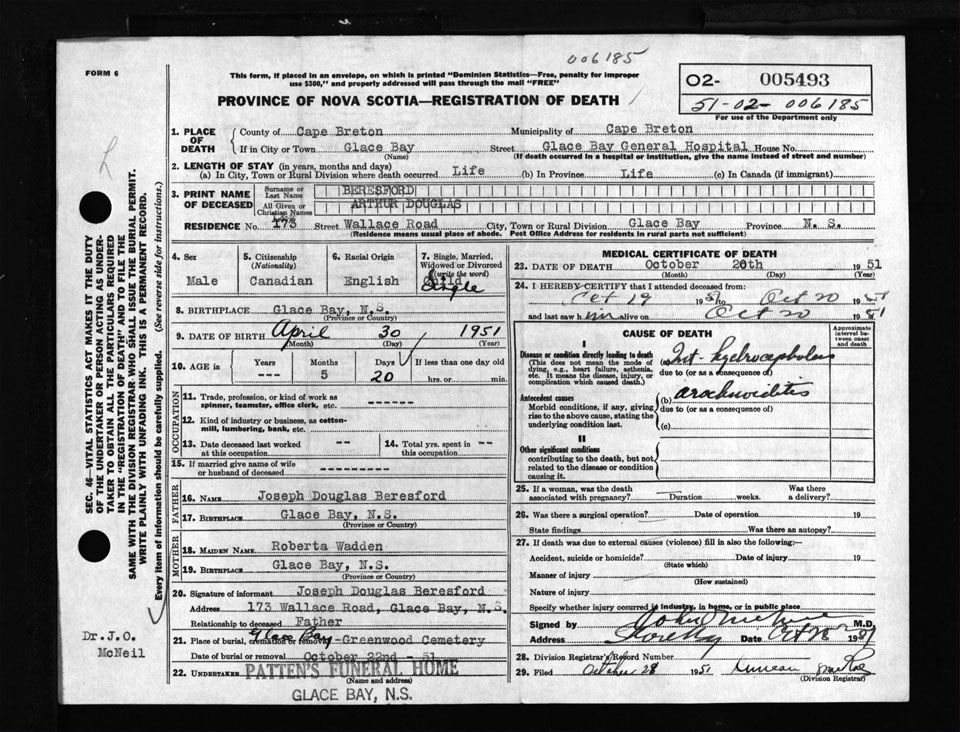 006185
FORM 6
This form, if placed in an envelope, on which is printed "Dominion Statistics—Free, penalty for improper
use $300," and properly addressed will pass through the mail "FREE"
02- 005493
51-02- 006185
For use of the Department only
PROVINCE OF NOVA SCOTIA—REGISTRATION OF DEATH
1. PLACE OF DEATH
County of Cape Breton Municipality of Cape Breton
If in City or Town Glace Bay Street Glace Bay General Hospital House No.
(Name) (If death occurred in a hospital or institution, give the name instead of street and number)
2. LENGTH OF STAY (in years, months and days)
(a) In City, Town or Rural Division where death occurred Life (b) In Province Life (c) In Canada (if immigrant)
3. PRINT NAME OF DECEASED
Surname or Last Name BERESFORD
All Given or Christian Names ARTHUR DOUGLAS
RESIDENCE No. 173 Street Wallace Road City, Town or Rural Division Glace Bay Province N. S.
(Residence means usual place of abode. Post Office Address for residents in rural parts not sufficient)
SEC. 46—VITAL STATISTICS ACT MAKES IT THE DUTY
OF THE UNDERTAKER OR PERSON ACTING AS UNDER-
TAKER TO OBTAIN ALL THE PARTICULARS REQUIRED
IN THE "REGISTRATION OF DEATH" AND TO FILE THE
SAME WITH THE DIVISION REGISTRAR WHO SHALL ISSUE THE BURIAL PERMIT.
WRITE PLAINLY WITH UNFADING INK. THIS IS A PERMANENT RECORD.
Every item of information should be carefully supplied. (See reverse side for instructions.)
4. Sex
Male
5. Citizenship
(Nationality)
Canadian
6. Racial Origin
English
7. Single, Married,
Widowed or Divorced
(write the word)
Child
Single
8. BIRTHPLACE Glace Bay, N.S.
(Province or Country)
9. DATE OF BIRTH April 30 1951
(Month) (Day) (Year)
10. AGE in Years --- Months 5 Days 20 If less than one day old
hrs. or min.
OCCUPATION
11. Trade, profession, or kind of work as
spinner, teamster, office clerk, etc. ------
12. Kind of industry or business, as cotton-
mill, lumbering, bank, etc.
13. Date deceased last worked
at this occupation -- 14. Total yrs. spent in
this occupation --
15. If married give name of wife
or husband of deceased ----------
FATHER
16. NAME Joseph Douglas Beresford
17. BIRTHPLACE Glace Bay, N.S.
(Province or Country)
MOTHER
18. MAIDEN NAME Roberta Wadden
19. BIRTHPLACE Glace Bay, N.S.
(Province or Country)
20. Signature of informant Joseph Douglas Beresford
Address 173 Wallace Road, Glace Bay, N.S.
Relationship to deceased Father
21. Place of burial, cremation or removal Glace Bay -Greenwood Cemetery
Date of burial or removal October 22nd - 51
22. UNDERTAKER PATTEN'S FUNERAL HOME
(Name and address)
GLACE BAY, N.S.
Dr. J.O.
McNeil
MEDICAL CERTIFICATE OF DEATH
23. DATE OF DEATH October 20th 1951
(Month) (Day) (Year)
24. I HEREBY CERTIFY that I attended deceased from:
Oct 19 1951 to Oct 20 1951
and last saw him alive on Oct 20 1951
CAUSE OF DEATH
Approximate interval between onset and death
I
Disease or condition directly leading to death
(This does not mean the mode of
dying, e.g., heart failure, asthenia,
etc. It means the disease, injury, or
complication which caused death.)
(a) Int. hydrocephalus
due to (or as a consequence of)
Antecedent causes
Morbid conditions, if any, giving
rise to the above cause, stating the
underlying condition last.
(b) arachnoiditis
due to (or as a consequence of)
(c)
II
Other significant conditions
contributing to the death, but not
related to the disease or condition
causing it.
25. If a woman, was the death
associated with pregnancy? Duration weeks. Was there
a delivery?
26. Was there a surgical operation? Date of operation 19
State findings Was there an autopsy?
27. If death was due to external causes (violence) fill in also the following:
Accident, suicide or homicide? Date of injury 19
(State which)
Manner of injury
(How sustained)
Nature of injury
Specify whether injury occurred in industry, in home, or in public place
Signed by M.D.
Address Date Oct 1951
28. Division Registrar's Record Number
29. Filed October 28 1951 Duncan
(Division Registrar)